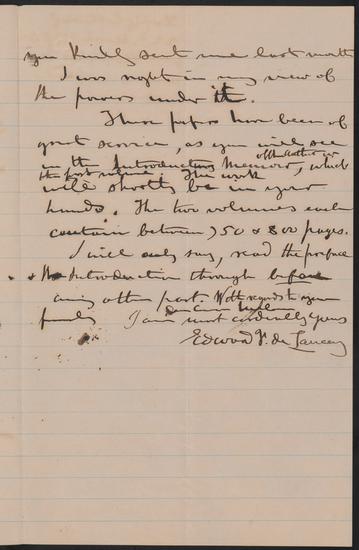 you kindly sent me last month
I was right in my view of
the powers under it.
These papers have been of
great service, as you will see
in the Introductory Memoir, which
of the Author in
the first volume. The work
will shortly be in your
hands. The two volumes each
contain between 750 & 800 pages.
I will only say, read the preface
& Introduction through before
any other part. With regards to your
family
I am most cordially yours
Edward F. de Lancey